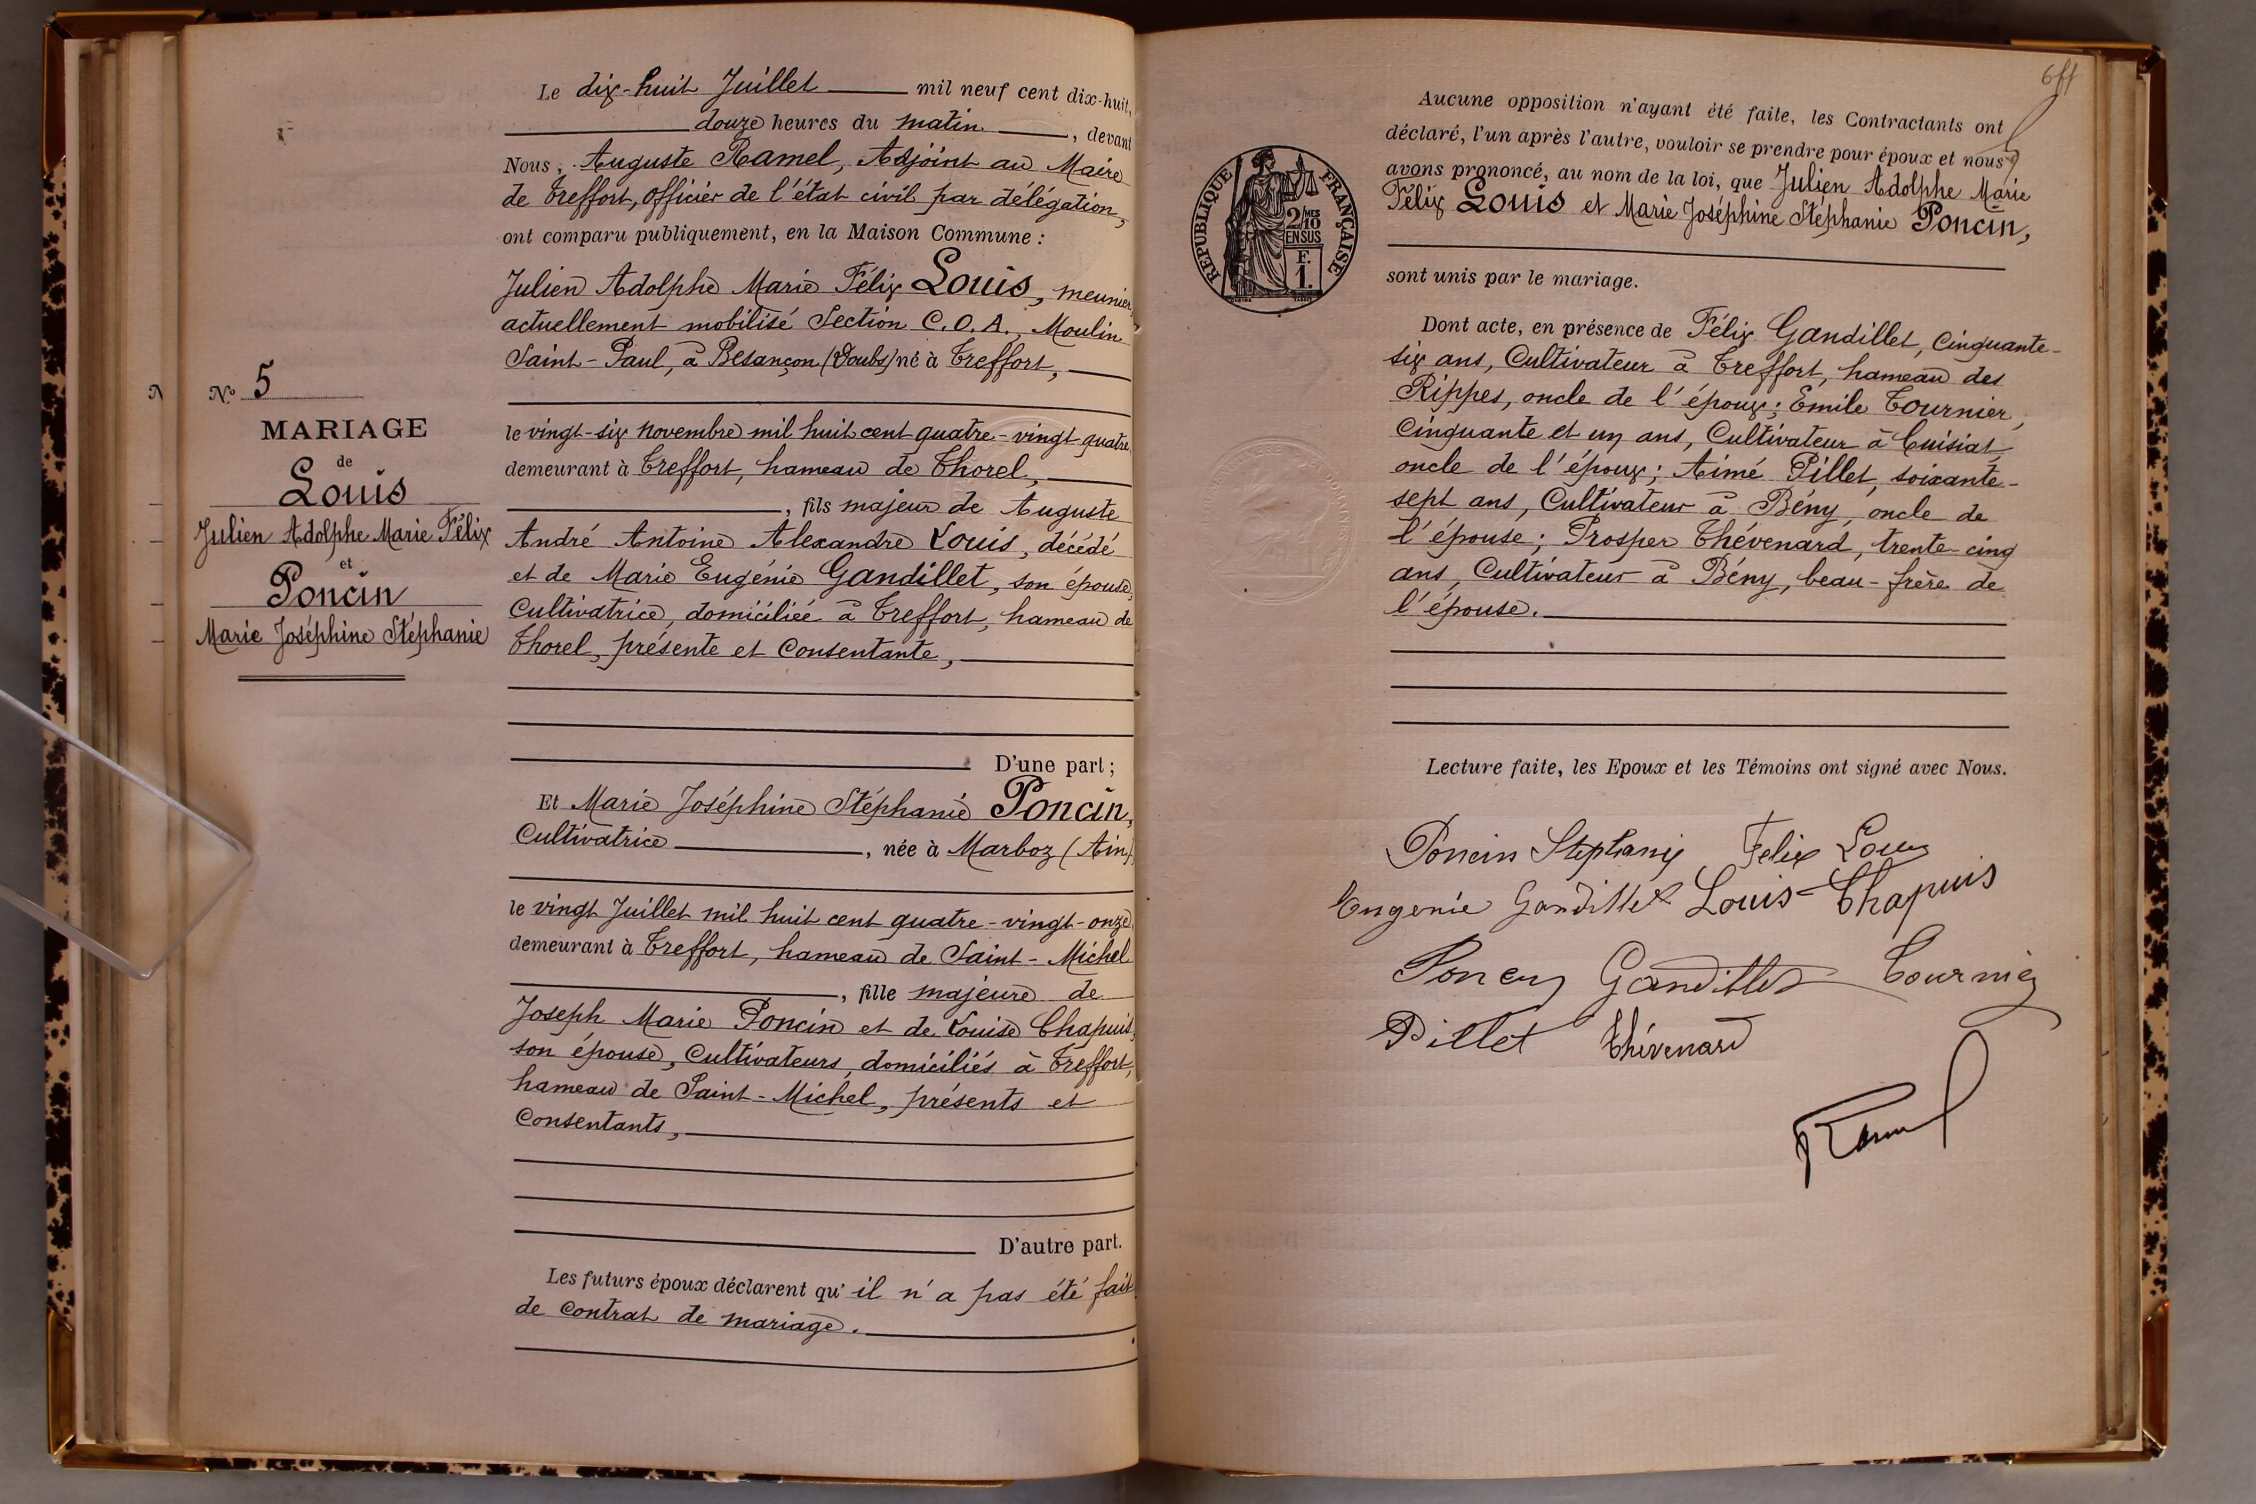 N
Nº 5
MARIAGE
de
Louis
Julien Adolphe Marie Félix
et
Poncin
Marie Joséphine Stéphanie
Le dix-huit Juillet mil neuf cent dix-huit,
douze heures du matin, devant
Nous, Auguste Ramel, Adjoint au Maire
de Treffort, officier de l'état civil par délégation,
ont comparu publiquement, en la Maison Commune :
Julien Adolphe Marie Félix Louis, meunier,
actuellement mobilisé Section C.O.A., Moulin
Saint-Paul, à Besançon (Doubs) né à Treffort,
le vingt-six novembre mil huit cent quatre-vingt quatre,
demeurant à Treffort, hameau de Thorel,
, fils majeur de Auguste
André Antoine Alexandre Louis, décédé
et de Marie Eugénie Gandillet, son épouse,
Cultivatrice, domiciliée à Treffort, hameau de
Thorel, présente et Consentante,
D'une part ;
Et Marie Joséphine Stéphanie Poncin,
Cultivatrice, née à Marboz (Ain),
le vingt Juillet mil huit cent quatre-vingt-onze,
demeurant à Treffort, hameau de Saint-Michel
, fille majeure de
Joseph Marie Poncin et de Louise Chapuis,
son épouse, Cultivateurs, domiciliés à Treffort,
hameau de Saint-Michel, présents et
Consentants,
D'autre part.
Les futurs époux déclarent qu'il n'a pas été fait
de contrat de mariage.
RÉPUBLIQUE FRANÇAISE
2/10 MES
EN SUS
F.
1.
Aucune opposition n'ayant été faite, les Contractants ont
déclaré, l'un après l'autre, vouloir se prendre pour époux et nous
avons prononcé, au nom de la loi, que Julien Adolphe Marie
Félix Louis et Marie Joséphine Stéphanie Poncin,
sont unis par le mariage.
Dont acte, en présence de Félix Gandillet, Cinquante-
six ans, Cultivateur à Treffort, hameau des
Rippes, oncle de l'époux; Emile Tournier,
Cinquante et un ans, Cultivateur à Cuisiat
oncle de l'époux; Aimé Pillet, soixante-
sept ans, Cultivateur à Bény, oncle de
l'épouse; Prosper Thévenard, trente-cinq
ans, Cultivateur à Bény, beau-frère de
l'épouse.
Lecture faite, les Epoux et les Témoins ont signé avec Nous.
Poncin Stéphanie Felix Louis
Eugenie Gandillet Louis-Chapuis
Poncin Gandillet Tournier
Pillet Thévenard
Ramel